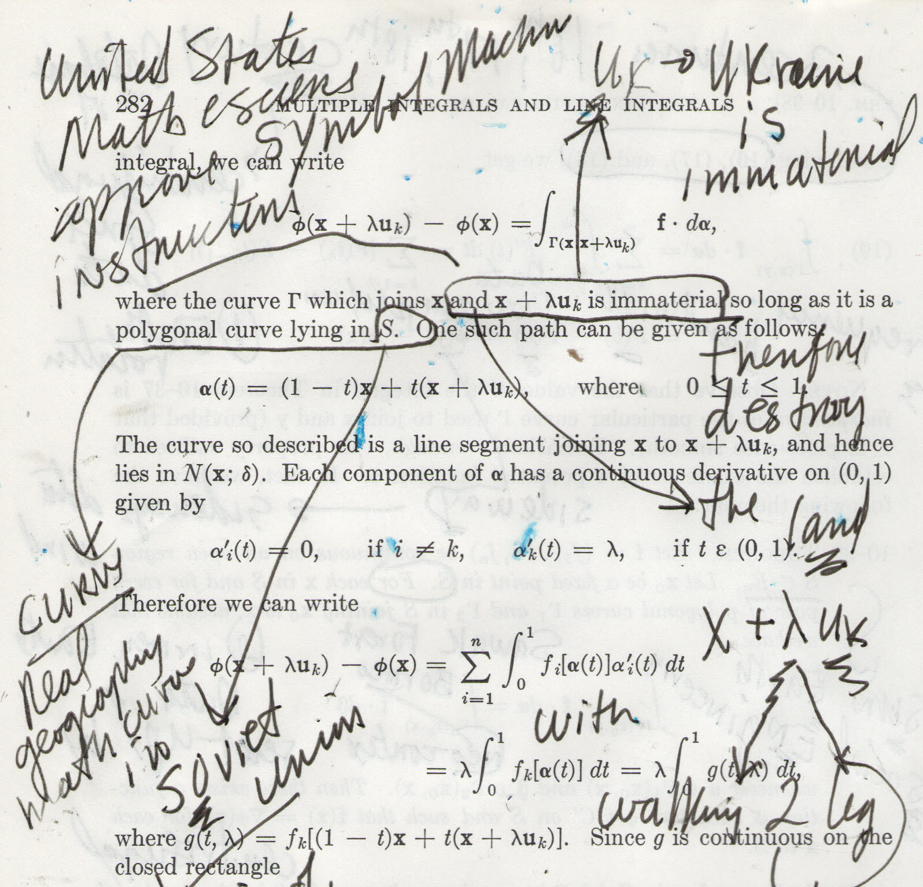 United States
Math
Symbol Machine
approve
instructions
Uk → Ukraine
is
immaterial
282 MULTIPLE INTEGRALS AND LINE INTEGRALS
integral, we can write
ϕ(x + λuₖ) − ϕ(x) = ∫_{Γ(x;x+λuₖ)} f · dα,
where the curve Γ which joins x and x + λuₖ is immaterial so long as it is a
polygonal curve lying in S. One such path can be given as follows:
Therefore
α(t) = (1 − t)x + t(x + λuₖ), where 0 ≤ t ≤ 1.
destroy
The curve so described is a line segment joining x to x + λuₖ, and hence
lies in N(x; δ). Each component of α has a continuous derivative on (0, 1)
given by
the land
α′ᵢ(t) = 0, if i ≠ k, α′ₖ(t) = λ, if t ε (0, 1).
Curve
Therefore we can write
X + λ Uk
ϕ(x + λuₖ) − ϕ(x) = ∑_{i=1}^{n} ∫₀¹ fᵢ[α(t)]α′ᵢ(t) dt
Real
geography
math curve
into
Soviet
union
with
= λ ∫₀¹ fₖ[α(t)] dt = λ ∫₀¹ g(t, λ) dt,
walking 2 leg
where g(t, λ) = fₖ[(1 − t)x + t(x + λuₖ)]. Since g is continuous on the
closed rectangle